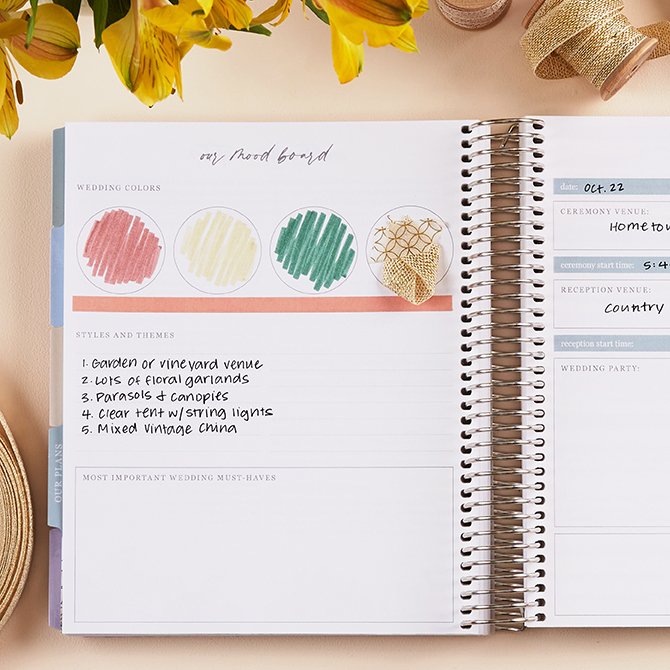 our mood board
WEDDING COLORS
STYLES AND THEMES
1. Garden or vineyard venue
2. Lots of floral garlands
3. Parasols & Canopies
4. Clear tent w/string lights
5. Mixed Vintage China
MOST IMPORTANT WEDDING MUST-HAVES
OUR PLANS
date: Oct. 22
CEREMONY VENUE:
ceremony start time:
RECEPTION VENUE:
Country
reception start time:
WEDDING PARTY: